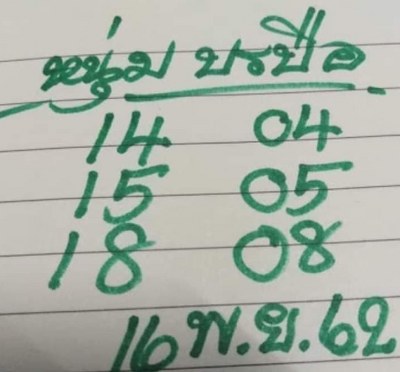 หนุ่ม บรบือ
14 04
15 05
18 08
16 พ.ย.62